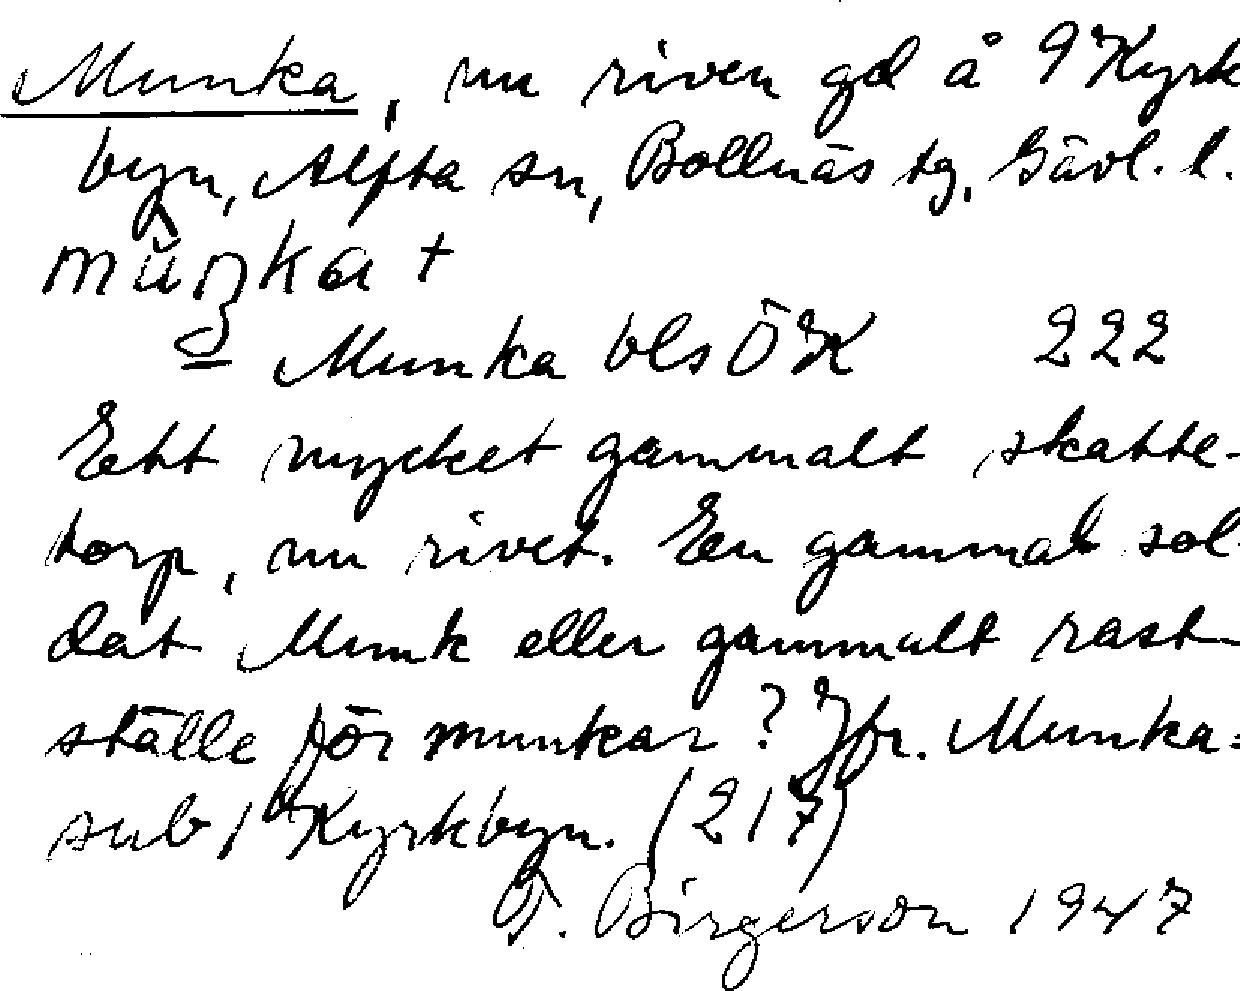 Munka, nu riven gd å 9 Kyrk
byn, Alfta sn, Bollnäs tg, Gävl. l.
mŭŋka +
= Munka bls ÖK 222
Ett mycket gammalt skatte-
torp, nu rivet. En gammal sol-
dat Munk eller gammalt rast-
ställe för munkar? Jfr. Munka=
sub 1 Kyrkbyn. (217)
T. Birgerson 1947